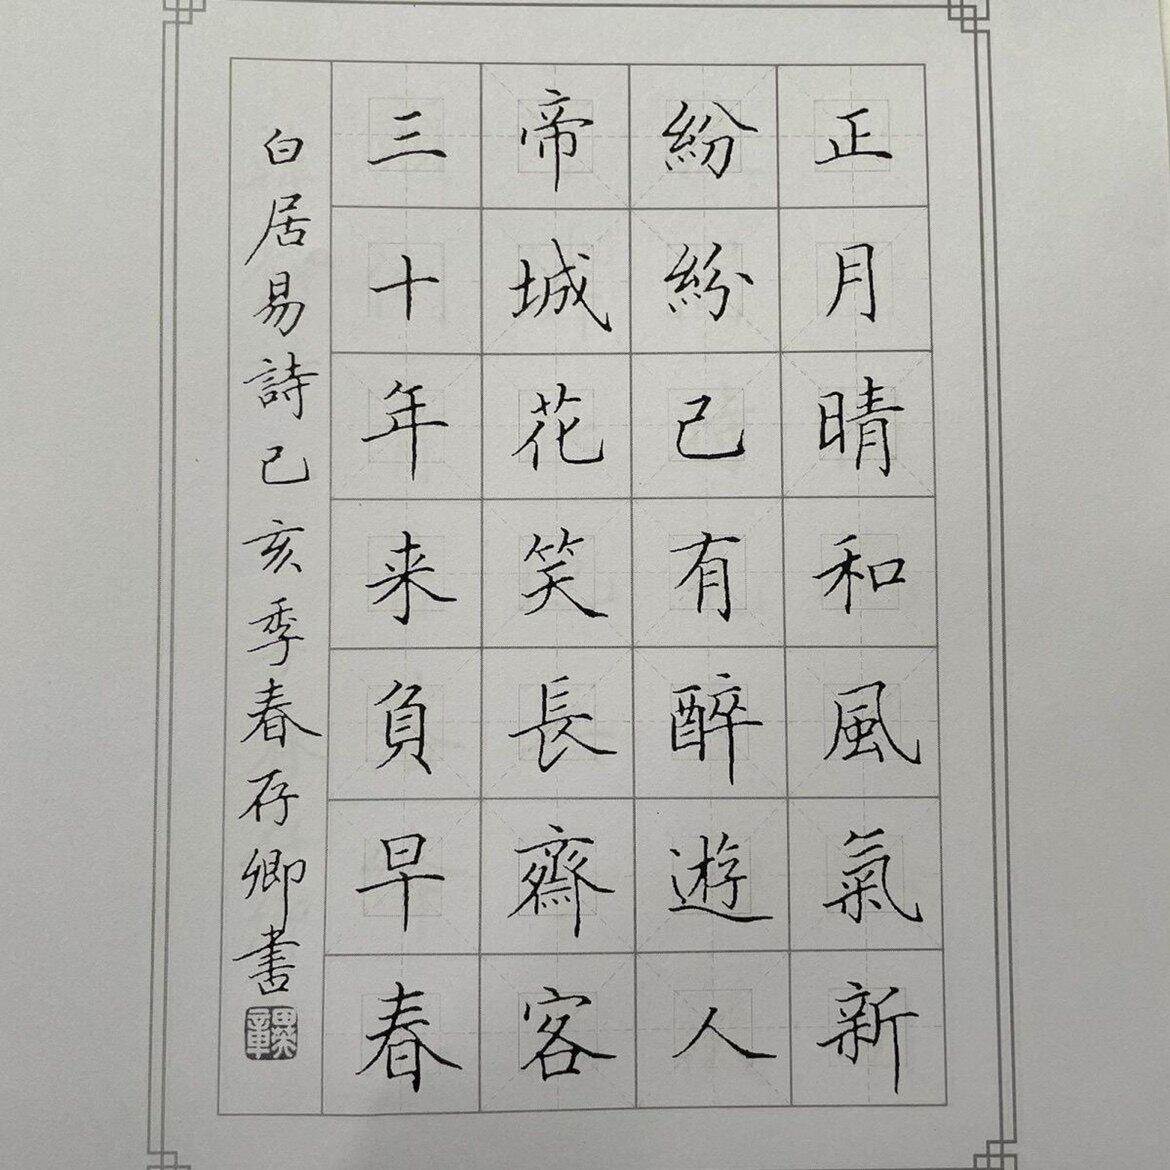 正月晴和風氣新
紛紛已有醉遊人
帝城花笑長齋客
三十年来負早春
白居易詩己亥季春存卿書